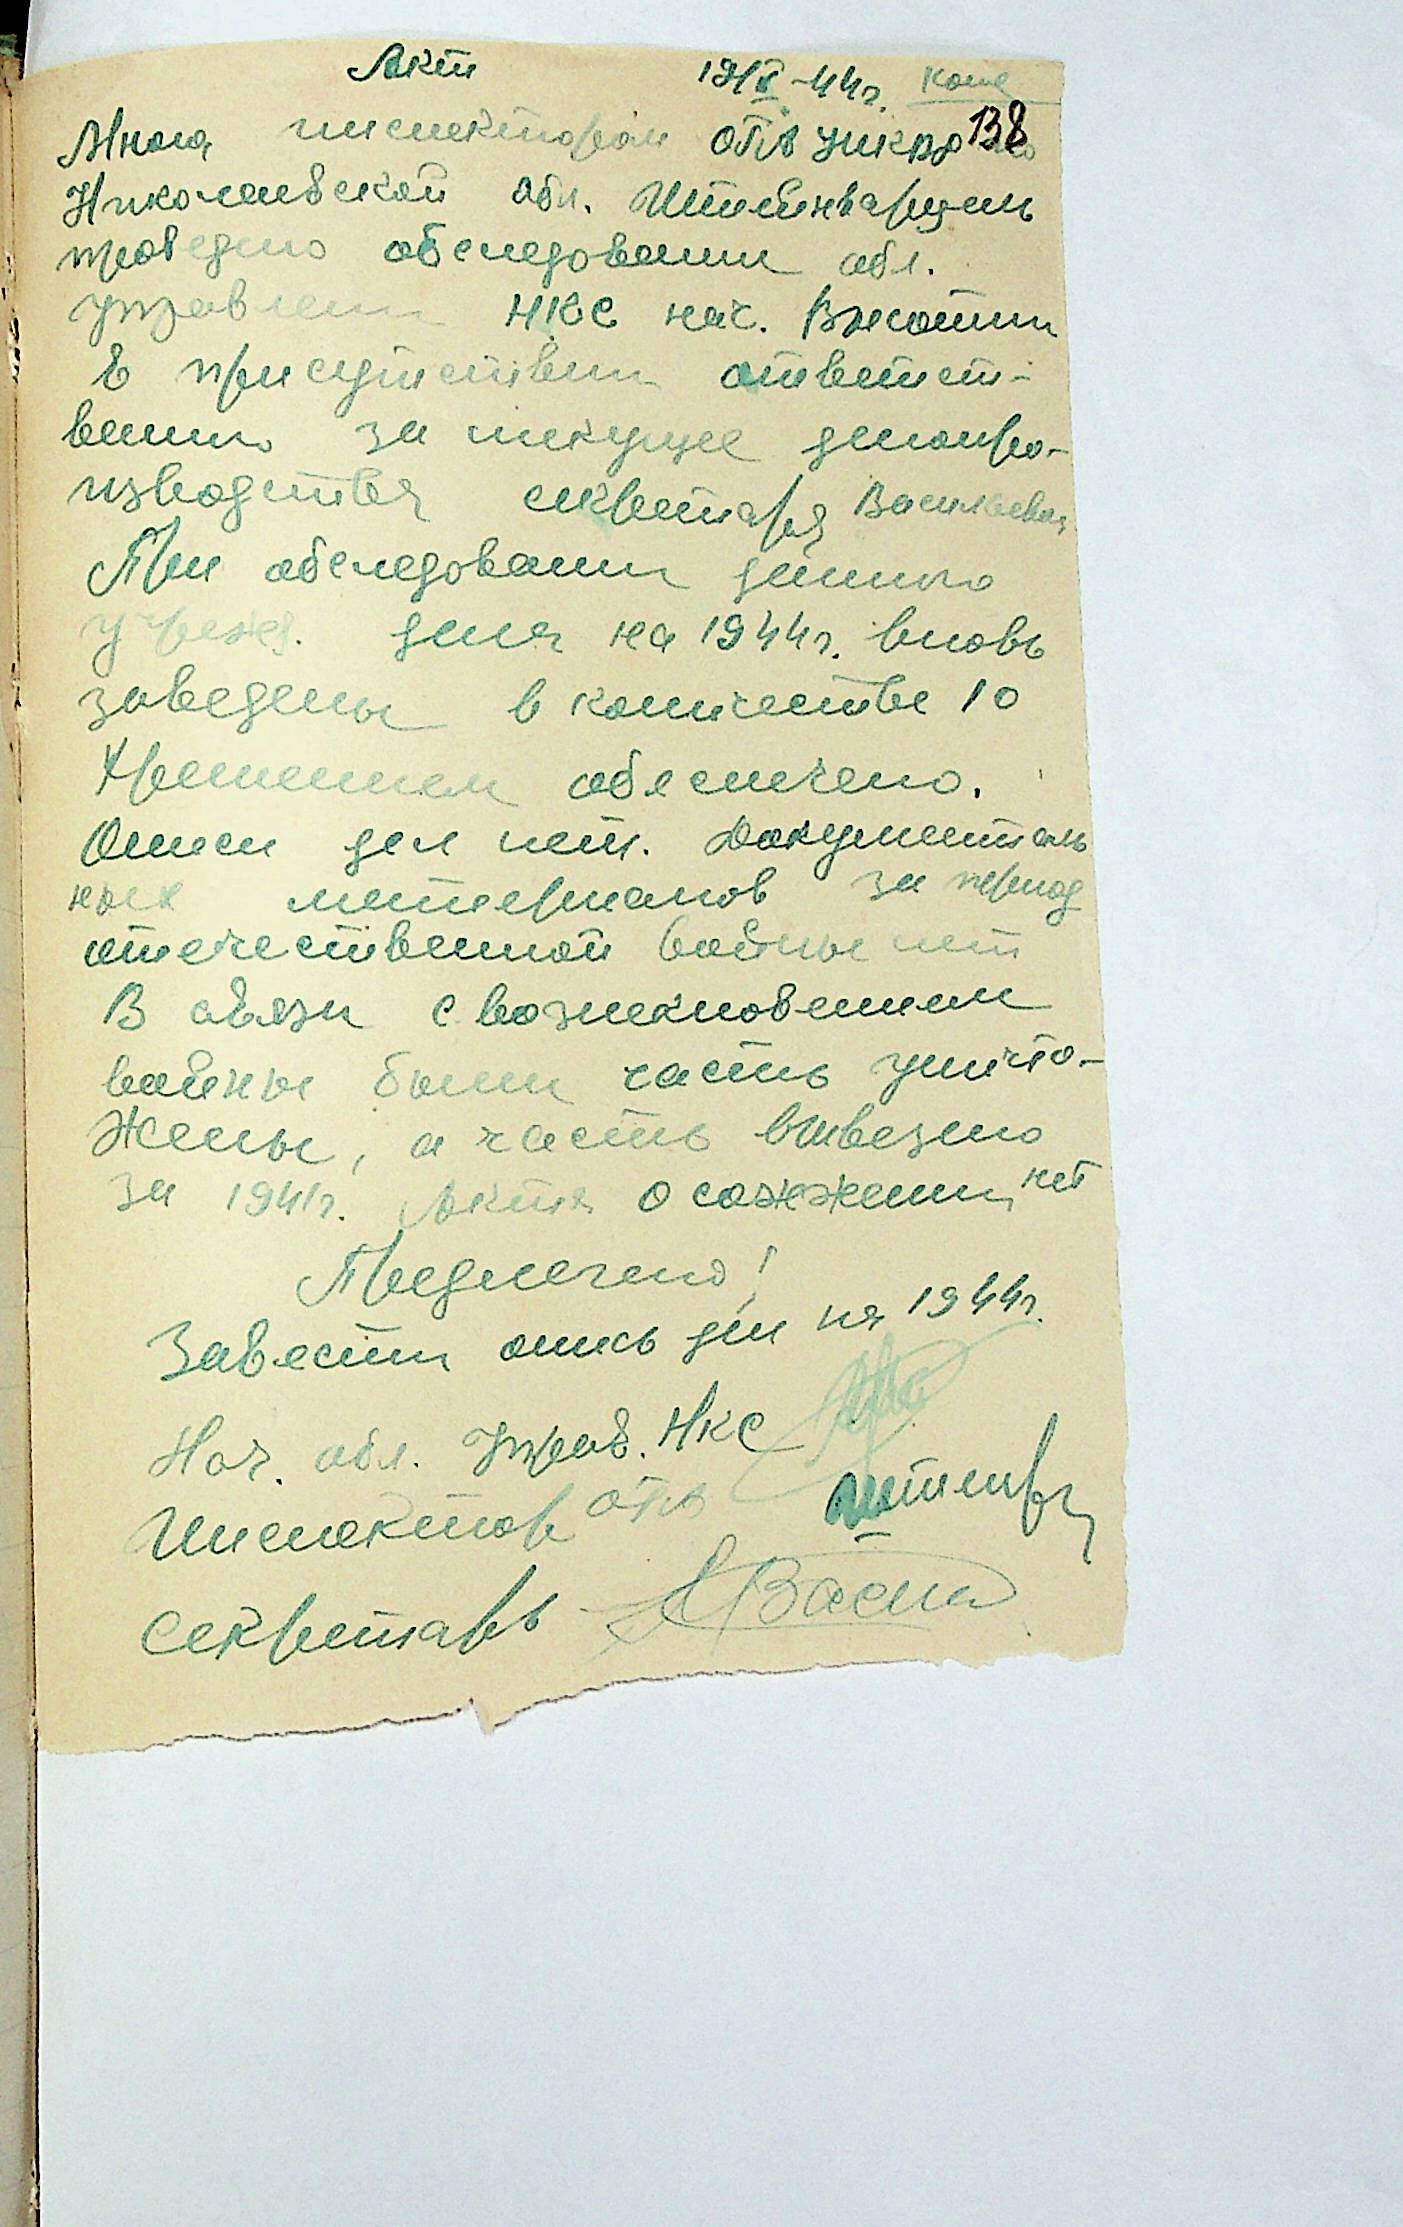 Акт 19/X-44г. Копе
138
Мною инспектором ОГА УНКВД по
Николаевской обл. Штейнварцем
проведено обследовании обл.
управлени НКС нач.
В присутствии ответст-
венно за текущее делопро-
изводства секретаря Васильевой
При обследовании данного
учрежд. дела на 1944г. вновь
заведены в количестве 10
Хранением обеспечено.
Описи дел нет. Документаль
ных материалов за период
отечественной войны нет
В связи с возникновением
войны были часть уничто-
жены, а часть вывезено
за 1941г. Акта о сожжении нет
Предложено!
Завести опись дел на 1944г.
Нач. обл. Управ. НКС
Инспектор ОГА
Секретарь Васил